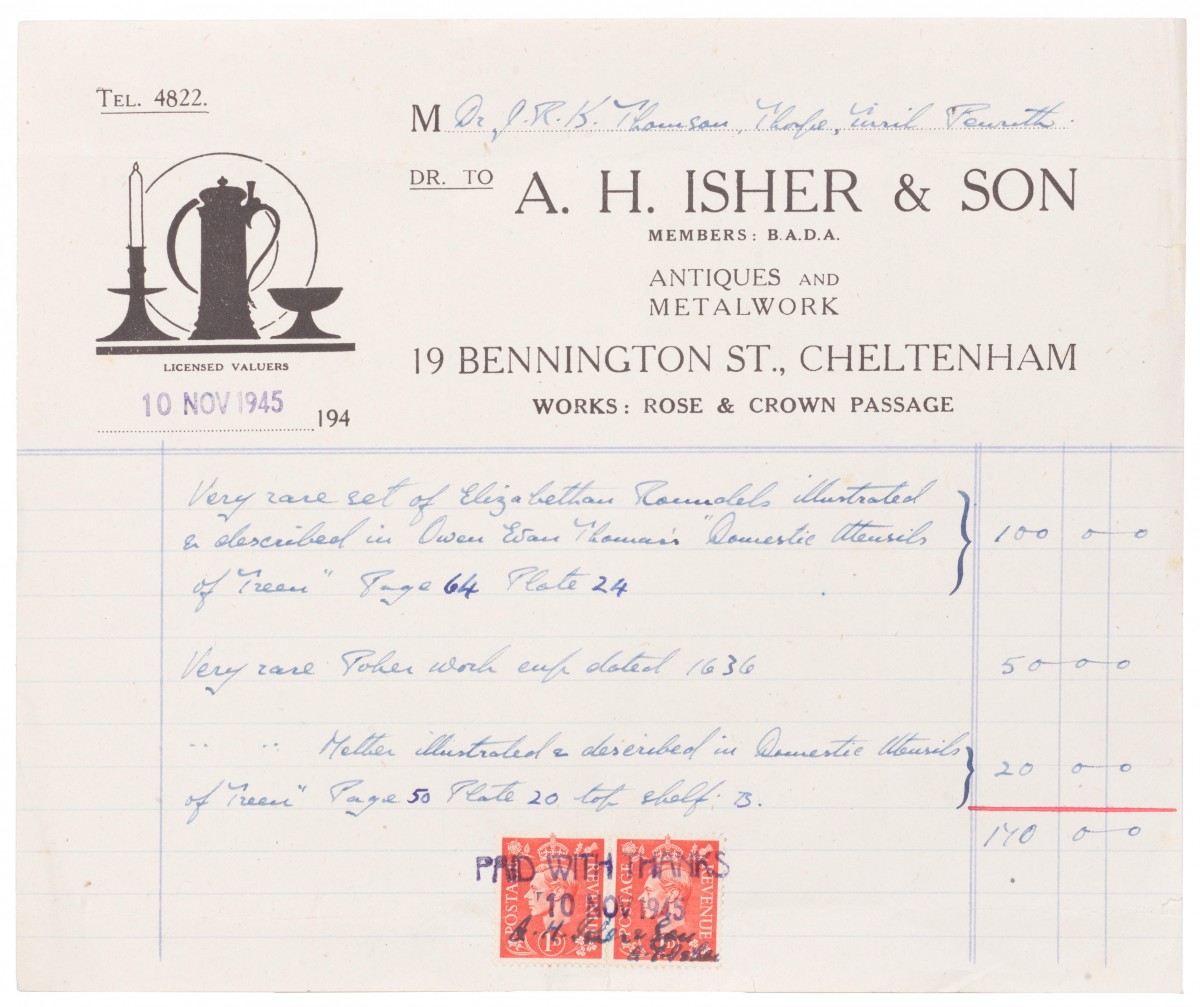 TEL. 4822.
M Dr J. R. K. Thomson, Thorpe, Tirril Penrith.
DR. TO A. H. ISHER & SON
MEMBERS: B.A.D.A.
ANTIQUES AND
METALWORK
19 BENNINGTON ST., CHELTENHAM
WORKS: ROSE & CROWN PASSAGE
LICENSED VALUERS
10 NOV 1945 194
Very rare set of Elizabethan Roundels illustrated
& described in Owen Evan Thomas's "Domestic Utensils 100 0 0
of Treen" Page 64 Plate 24
Very rare Poker work cup dated 1636 50 0 0
" " Mether illustrated & described in Domestic Utensils 20 0 0
of Treen" Page 50 Plate 20 top shelf: B.
170 0 0
POSTAGE REVENUE 1D POSTAGE REVENUE
PAID WITH THANKS
10 NOV 1945
A. H. Isher & Son